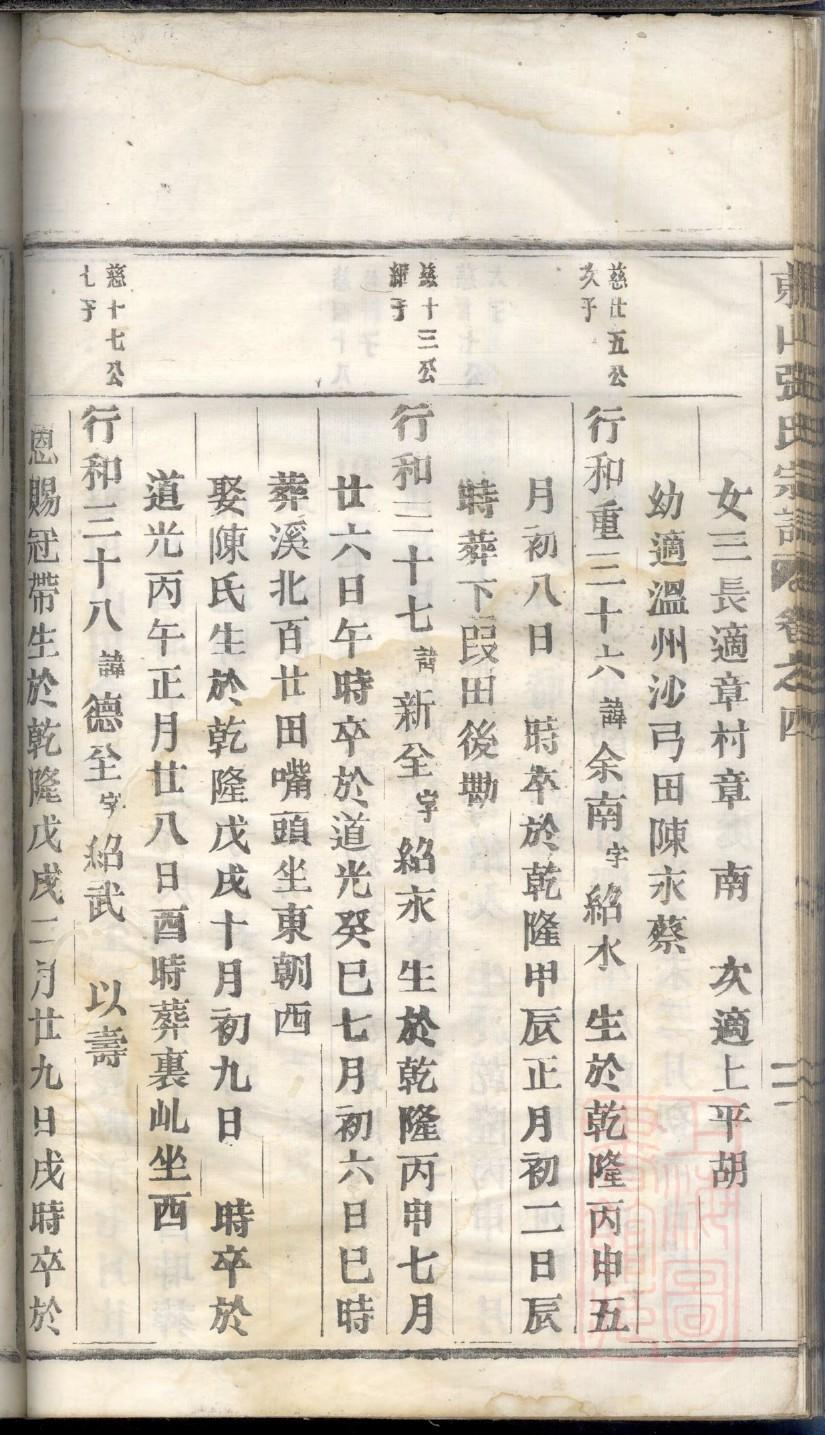 山張氏宗譜 卷之四
女三長適章村章 南 次適上平胡
幼適溫州沙弓田陳永蔡
慈廿五公
次子
行和重三十六諱余南字紹水 生於乾隆丙申五
月初八日 時卒於乾隆甲辰正月初二日辰
時葬下段田後磡
慈十三公
繼子
行和三十七諱新全字紹永 生於乾隆丙申七月
廿六日午時卒於道光癸巳七月初六日巳時
葬溪北百廿田嘴頭坐東朝西
娶陳氏生於乾隆戊戌十月初九日 時卒於
道光丙午正月廿八日酉時葬裏乢坐西
慈十七公
七子
行和三十八諱德全字紹武 以壽
恩賜冠帶生於乾隆戊戌二月廿九日戌時卒於